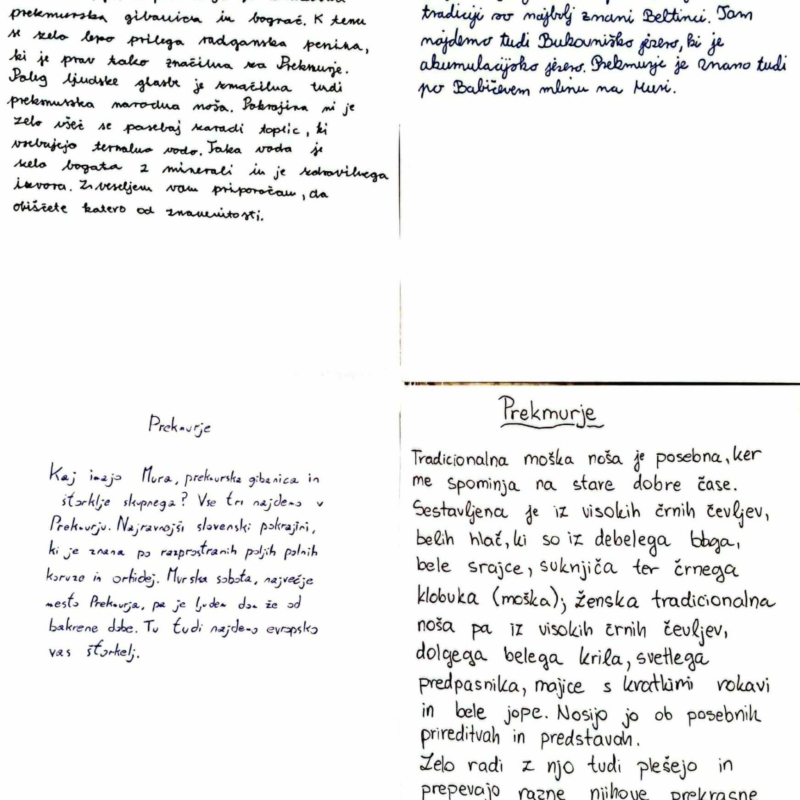 prekmurska gibanica in bograč. K temu
se zelo lepo prilega radganska penina,
ki je prav tako značilna za Prekmurje.
Poleg ljudske glasbe je značilna tudi
prekmurska narodna noša. Pokrajina mi je
zelo všeč še posebaj zaradi toplic, ki
vsebujejo termalno vodo. Taka voda je
zelo bogata z minerali in je zdravilnega
izvora. Z veseljem vam priporočam, da
obiščete katero od znamenitosti.
tradiciji so najbolj znani Beltinci. Tam
najdemo tudi Bukovniško jezero, ki je
akumulacijsko jezero. Prekmurje je znano tudi
po Babičevem mlinu na Muri.
Prekmurje
Kaj imajo Mura, prekmurska gibanica in
štorklje skupnega? Vse tri najdemo v
Prekmurju. Najravnejši slovenski pokrajini,
ki je znana po razprostranih poljih polnih
koruze in orhidej. Murska sobota, največje
mesto Prekmurja, pa je ljudem dom že od
bakrene dobe. Tu tudi najdemo evropsko
vas štorkelj.
Prekmurje
Tradicionalna moška noša je posebna, ker
me spominja na stare dobre čase.
Sestavljena je iz visokih črnih čevljev,
belih hlač, ki so iz debelega blaga,
bele srajce, suknjiča ter črnega
klobuka (moška); ženska tradicionalna
noša pa iz visokih črnih čevljev,
dolgega belega krila, svetlega
predpasnika, majice s kratkimi rokavi
in bele jope. Nosijo jo ob posebnih
prireditvah in predstavah.
Zelo radi z njo tudi plešejo in
prepevajo razne njihove prekrasne